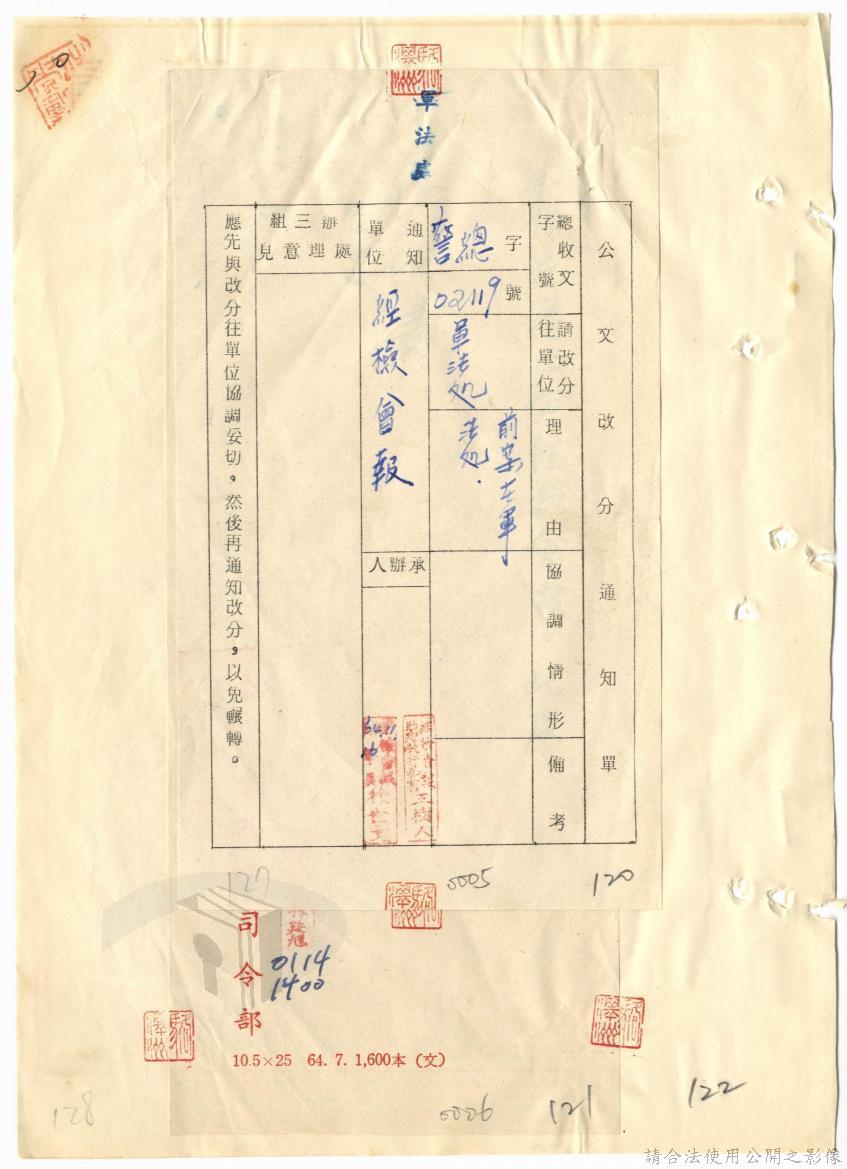 軍法處
公文改分通知單
總收文
字號
請改分
往單位
理由
協調情形
備考
字
號
警總
02119
軍法処
前案在軍
法処.
通知
單位
經檢會報
承辦人
辦三組
處理意見
應先與改分往單位協調妥切。然後再通知改分。以免輾轉。
127
0005
120
司令部
0114
1400
10.5×25 64. 7. 1,600本（文）
128
0006
121
122
請合法使用公開之影像